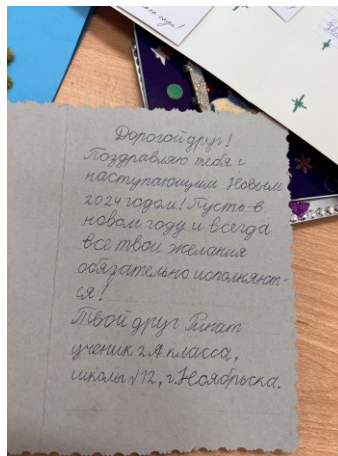 Дорогой друг!
Поздравляю тебя с
наступающим Новым
2024 годом! Пусть в
новом году и всегда
все твои желания
обязательно исполняют-
ся!
Твой друг Ринат
ученик 2А класса,
школы №12, г. Ноябрьска.